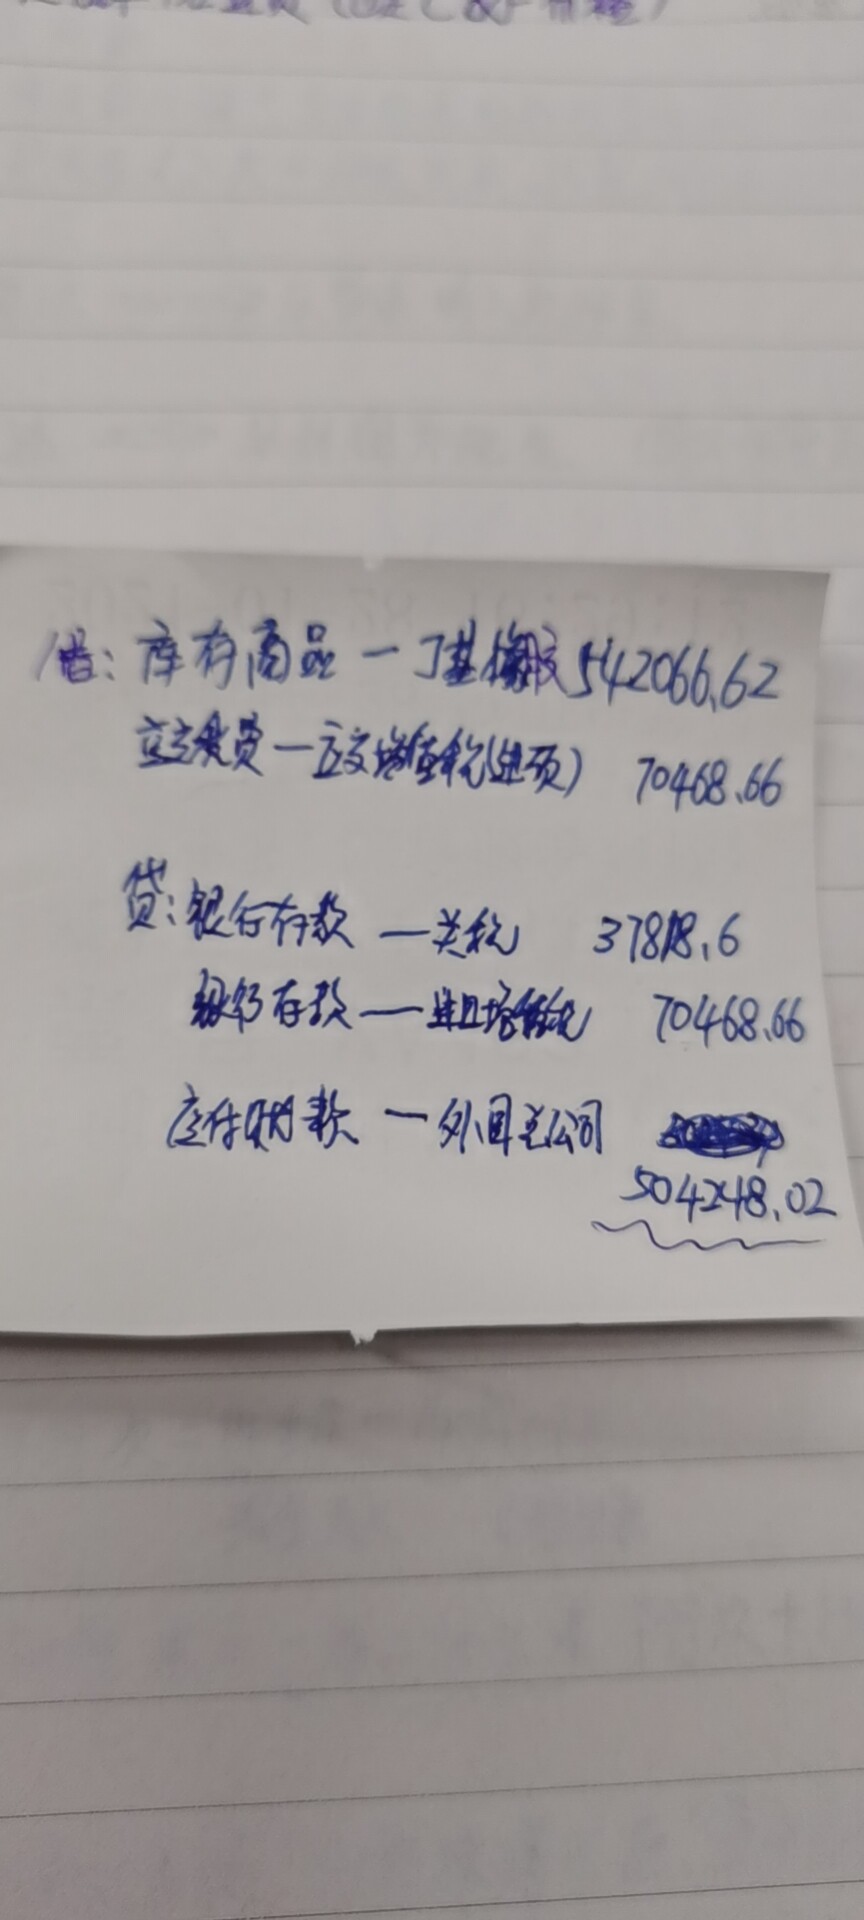 借：库存商品 — 丁基橡胶 542066.62
应交税费 — 应交增值税(进项) 70468.66
贷：银行存款 — 关税 37818.6
银行存款 — 进口增值税 70468.66
应付账款 — 外国总公司
504248.02